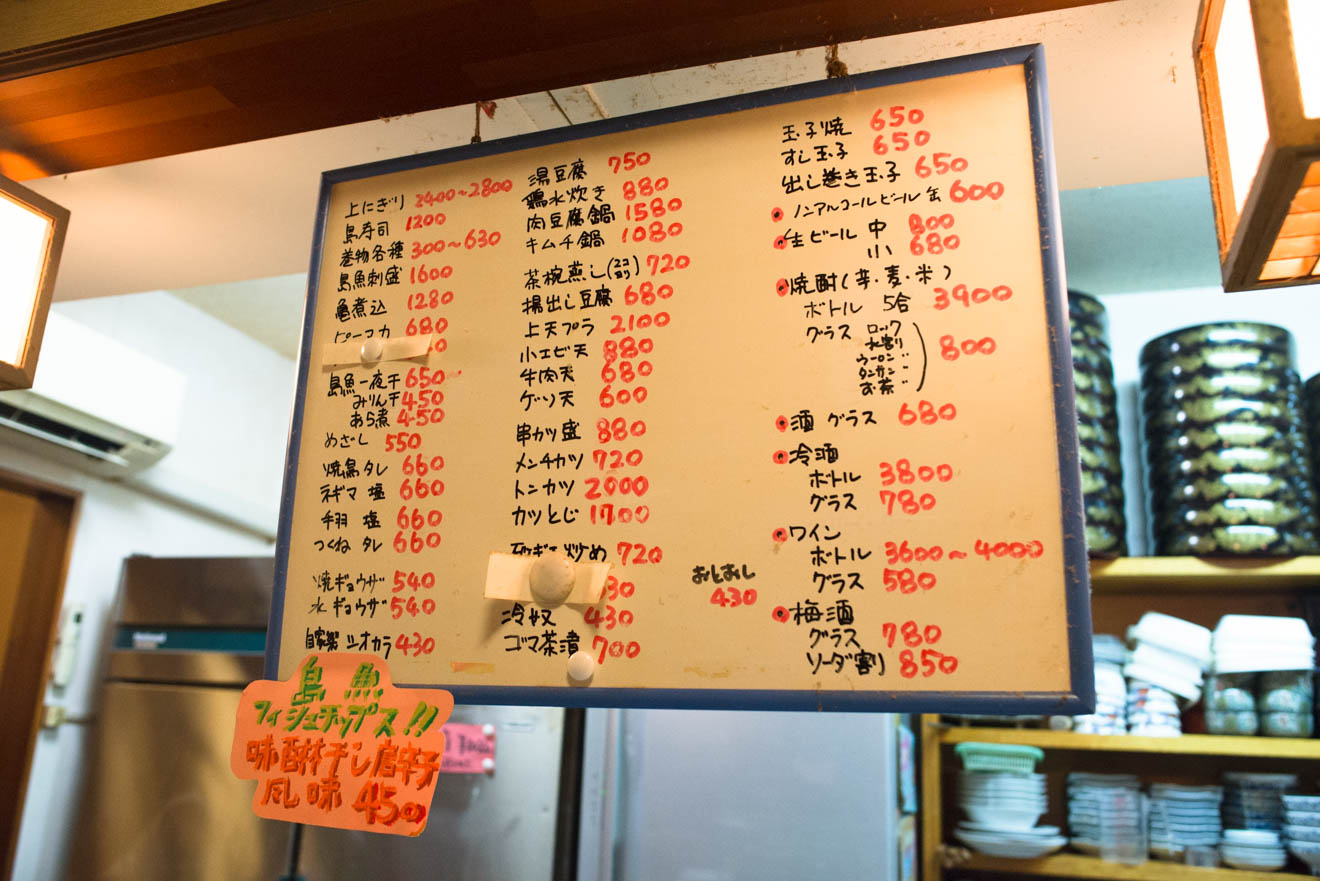 上にぎり 2400〜2800
島寿司 1200
巻物各種 300〜630
島魚刺盛 1600
亀煮込 1280
680
島魚一夜干 650
みりん干 450
あら煮 450
めざし 550
焼鳥 タレ 660
ネギマ 塩 660
手羽 塩 660
つくね タレ 660
焼ギョウザ 540
水ギョウザ 540
自家製 シオカラ 430
湯豆腐 750
鶏水炊き 880
肉豆腐鍋 1580
キムチ鍋 1080
茶椀蒸し(2コ) 720
揚出し豆腐 680
上天プラ 2100
小エビ天 880
牛肉天 680
ゲソ天 600
串カツ盛 880
メンチカツ 720
トンカツ 2000
カツとじ 1700
炒め 720
冷奴 430
ゴマ茶漬 700
玉子焼 650
すし玉子 650
出し巻き玉子 650
ノンアルコールビール 缶 600
生ビール 中 800
小 680
焼酎(芋・麦・米)
ボトル 5合 3900
グラス ロック
水割り
ウーロン 〃
タンサン 〃
お茶 〃
800
酒 グラス 680
冷酒
ボトル 3800
グラス 780
ワイン
ボトル 3600〜4000
グラス 580
おとおし
430
梅酒
グラス 780
ソーダ割り 850
島魚
フィシュチップス!!
味醂干し唐辛子
風味 450